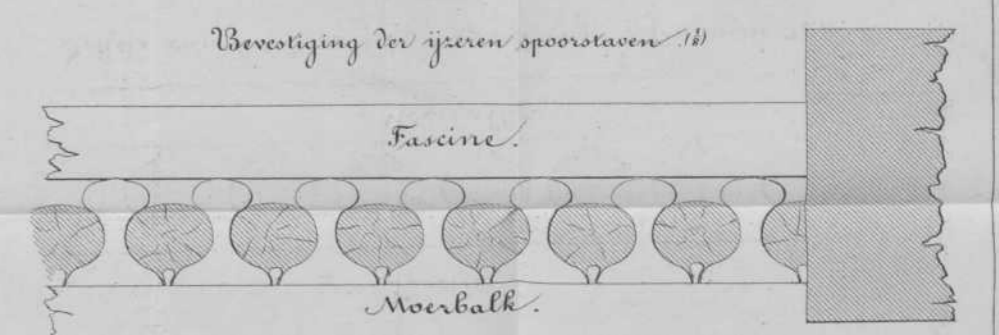 Bevestiging der ijzeren spoorstaven.
Fascine.
Moerbalk.